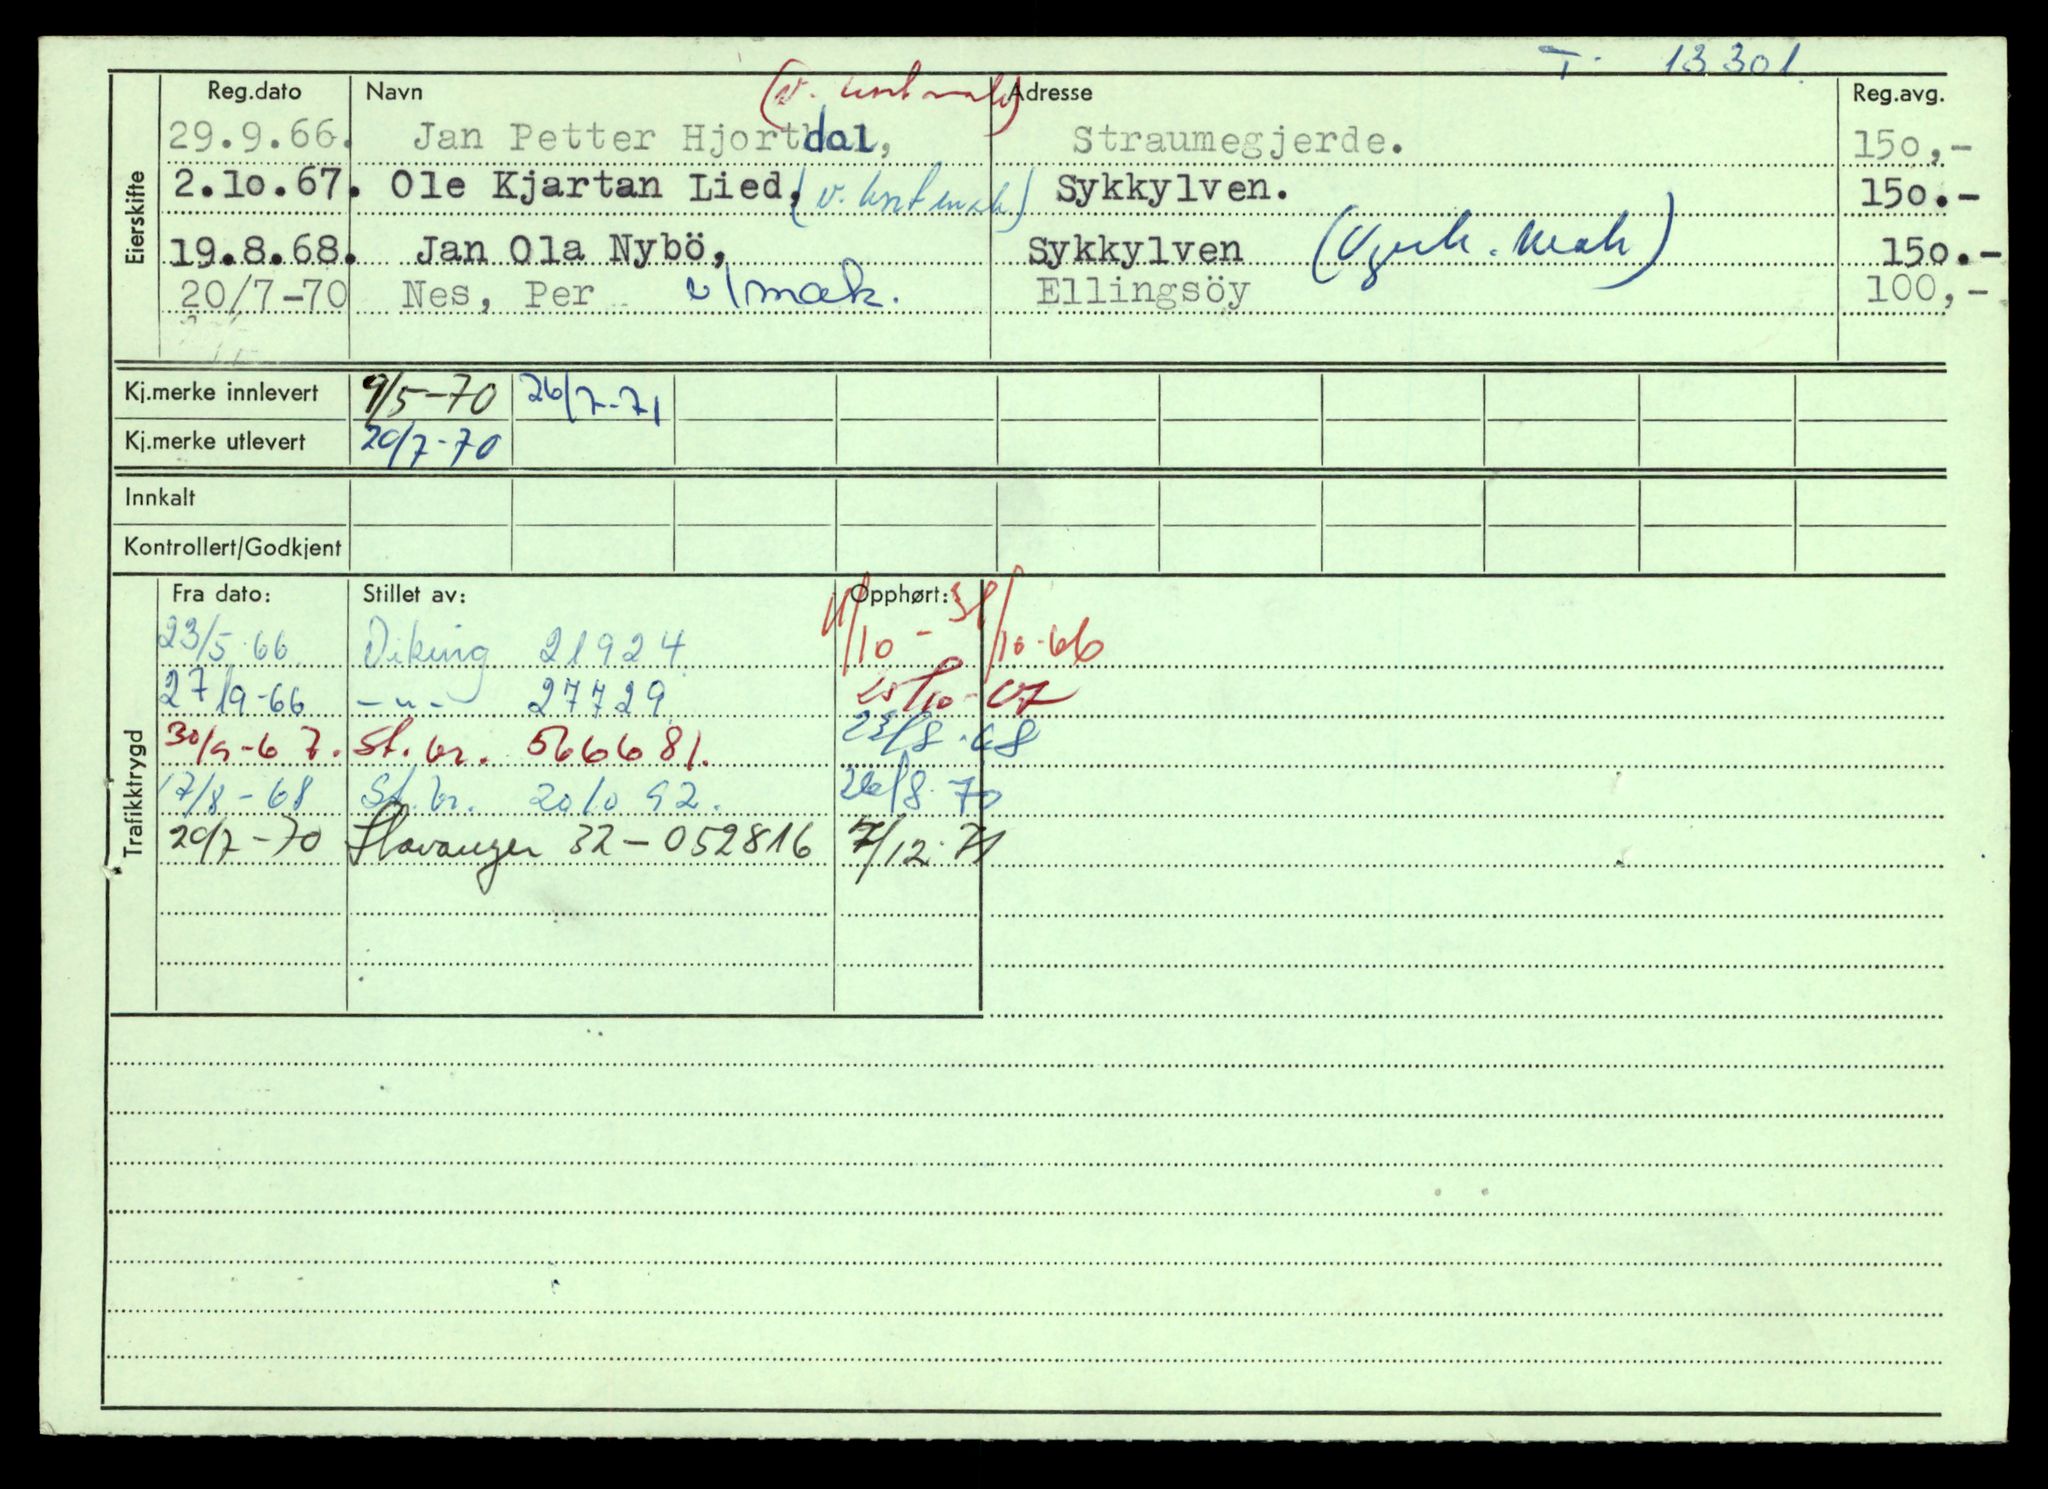 T- 13301
Reg.dato Navn Adresse Reg.avg.
29.9.66. Jan Petter Hjortdal, Straumegjerde. 150,-
2.10.67. Ole Kjartan Lied, Sykkylven. 150.-
19.8.68. Jan Ola Nybö, Sykkylven 150.-
20/7-70 Nes, Per v/mak. Ellingsöy 100,-
Eierskifte
Kj.merke innlevert 9/5-70 26/7-71
Kj.merke utlevert 20/7-70
Innkalt
Kontrollert/Godkjent
Fra dato: Stillet av: Opphørt:
23/5-66 Viking 21924 11/10 - 31/10-66
27/9-66 -"- 27729 25/10-67
30/9-67. St.br. 566681. 23/8-68
17/8-68 St.br. 201092. 26/8-70
20/7-70 Stavanger 32-052816 7/12-71
Trafikktrygd